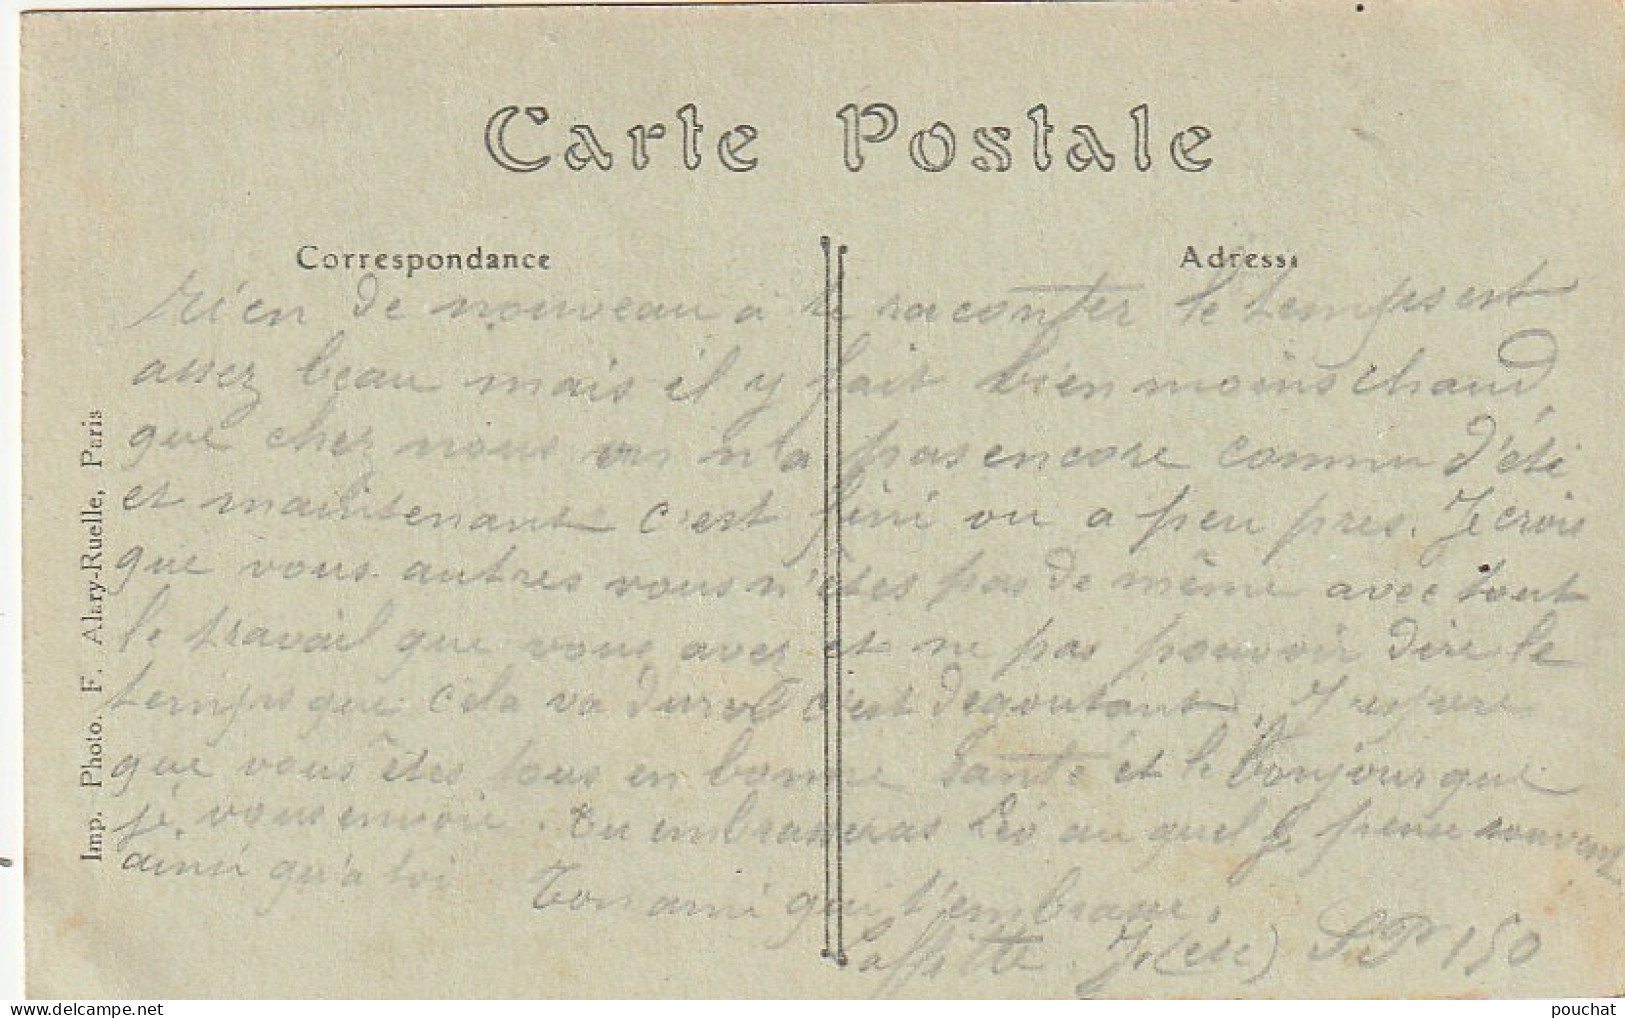 Carte Postale
Correspondance
Adresse
rien de nouveau à te raconter le temps est
assez beau mais il y fait bien moins chaud
que chez nous on n'a pas encore connu d'été
et maintenant c'est fini ou a peu pres. Je crois
que vous autres vous n'êtes pas de même avec tout
le travail que vous avez et ne pas pouvoir dire le
temps que cela va durer c'est degoutant. J'espere
que vous êtes tous en bonne santé et le bonjour que
je vous envoie. Tu embrasseras Léo au quel je pense souvent
ainsi qu'a toi Ton ami qui t'embrasse.
Laffitte. S.P 150
Imp. Photo. F. Alary-Ruelle, Paris
pouchat